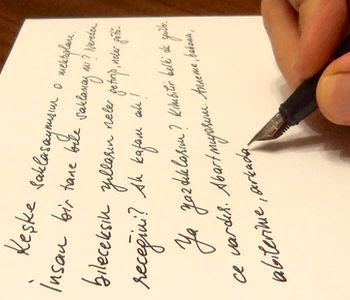 Keşke saklasaymışım o mektupları.
İnsan bir tane bile saklamaz mı? Nereden
bileceksin yılların neler getirip, neler götü-
receğini? Ah kafam ah!
Ya yazdıklarım? Kimbilir belki de yüzler-
ce vardır. Abartmıyorum. Anneme, babama,
abilerime, arkada